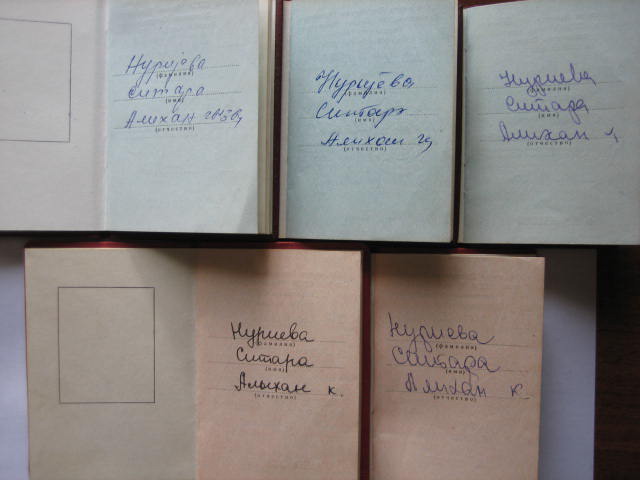 Нуријева
(фамилия)
Ситара
(имя)
Алихан
(отчество)
Нуријева
(фамилия)
Ситара
(имя)
Алихан
(отчество)
Нуриева
(фамилия)
Ситара
(имя)
Алихан
(отчество)
Нуриева
(фамилия)
Ситара
(имя)
Алыхан к.
(отчество)
Нуриева
(фамилия)
(имя)
Алихан к.
(отчество)